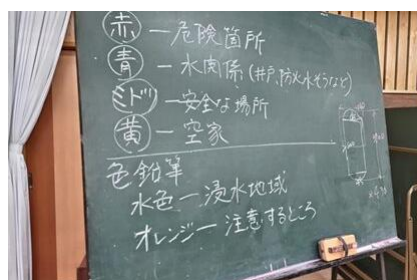 赤 ― 危険箇所
青 ― 水関係(井戸、防火水そうなど)
ミドリ ― 安全な場所
黄 ― 空家
色鉛筆
水色 ― 浸水地域
オレンジ ― 注意するところ